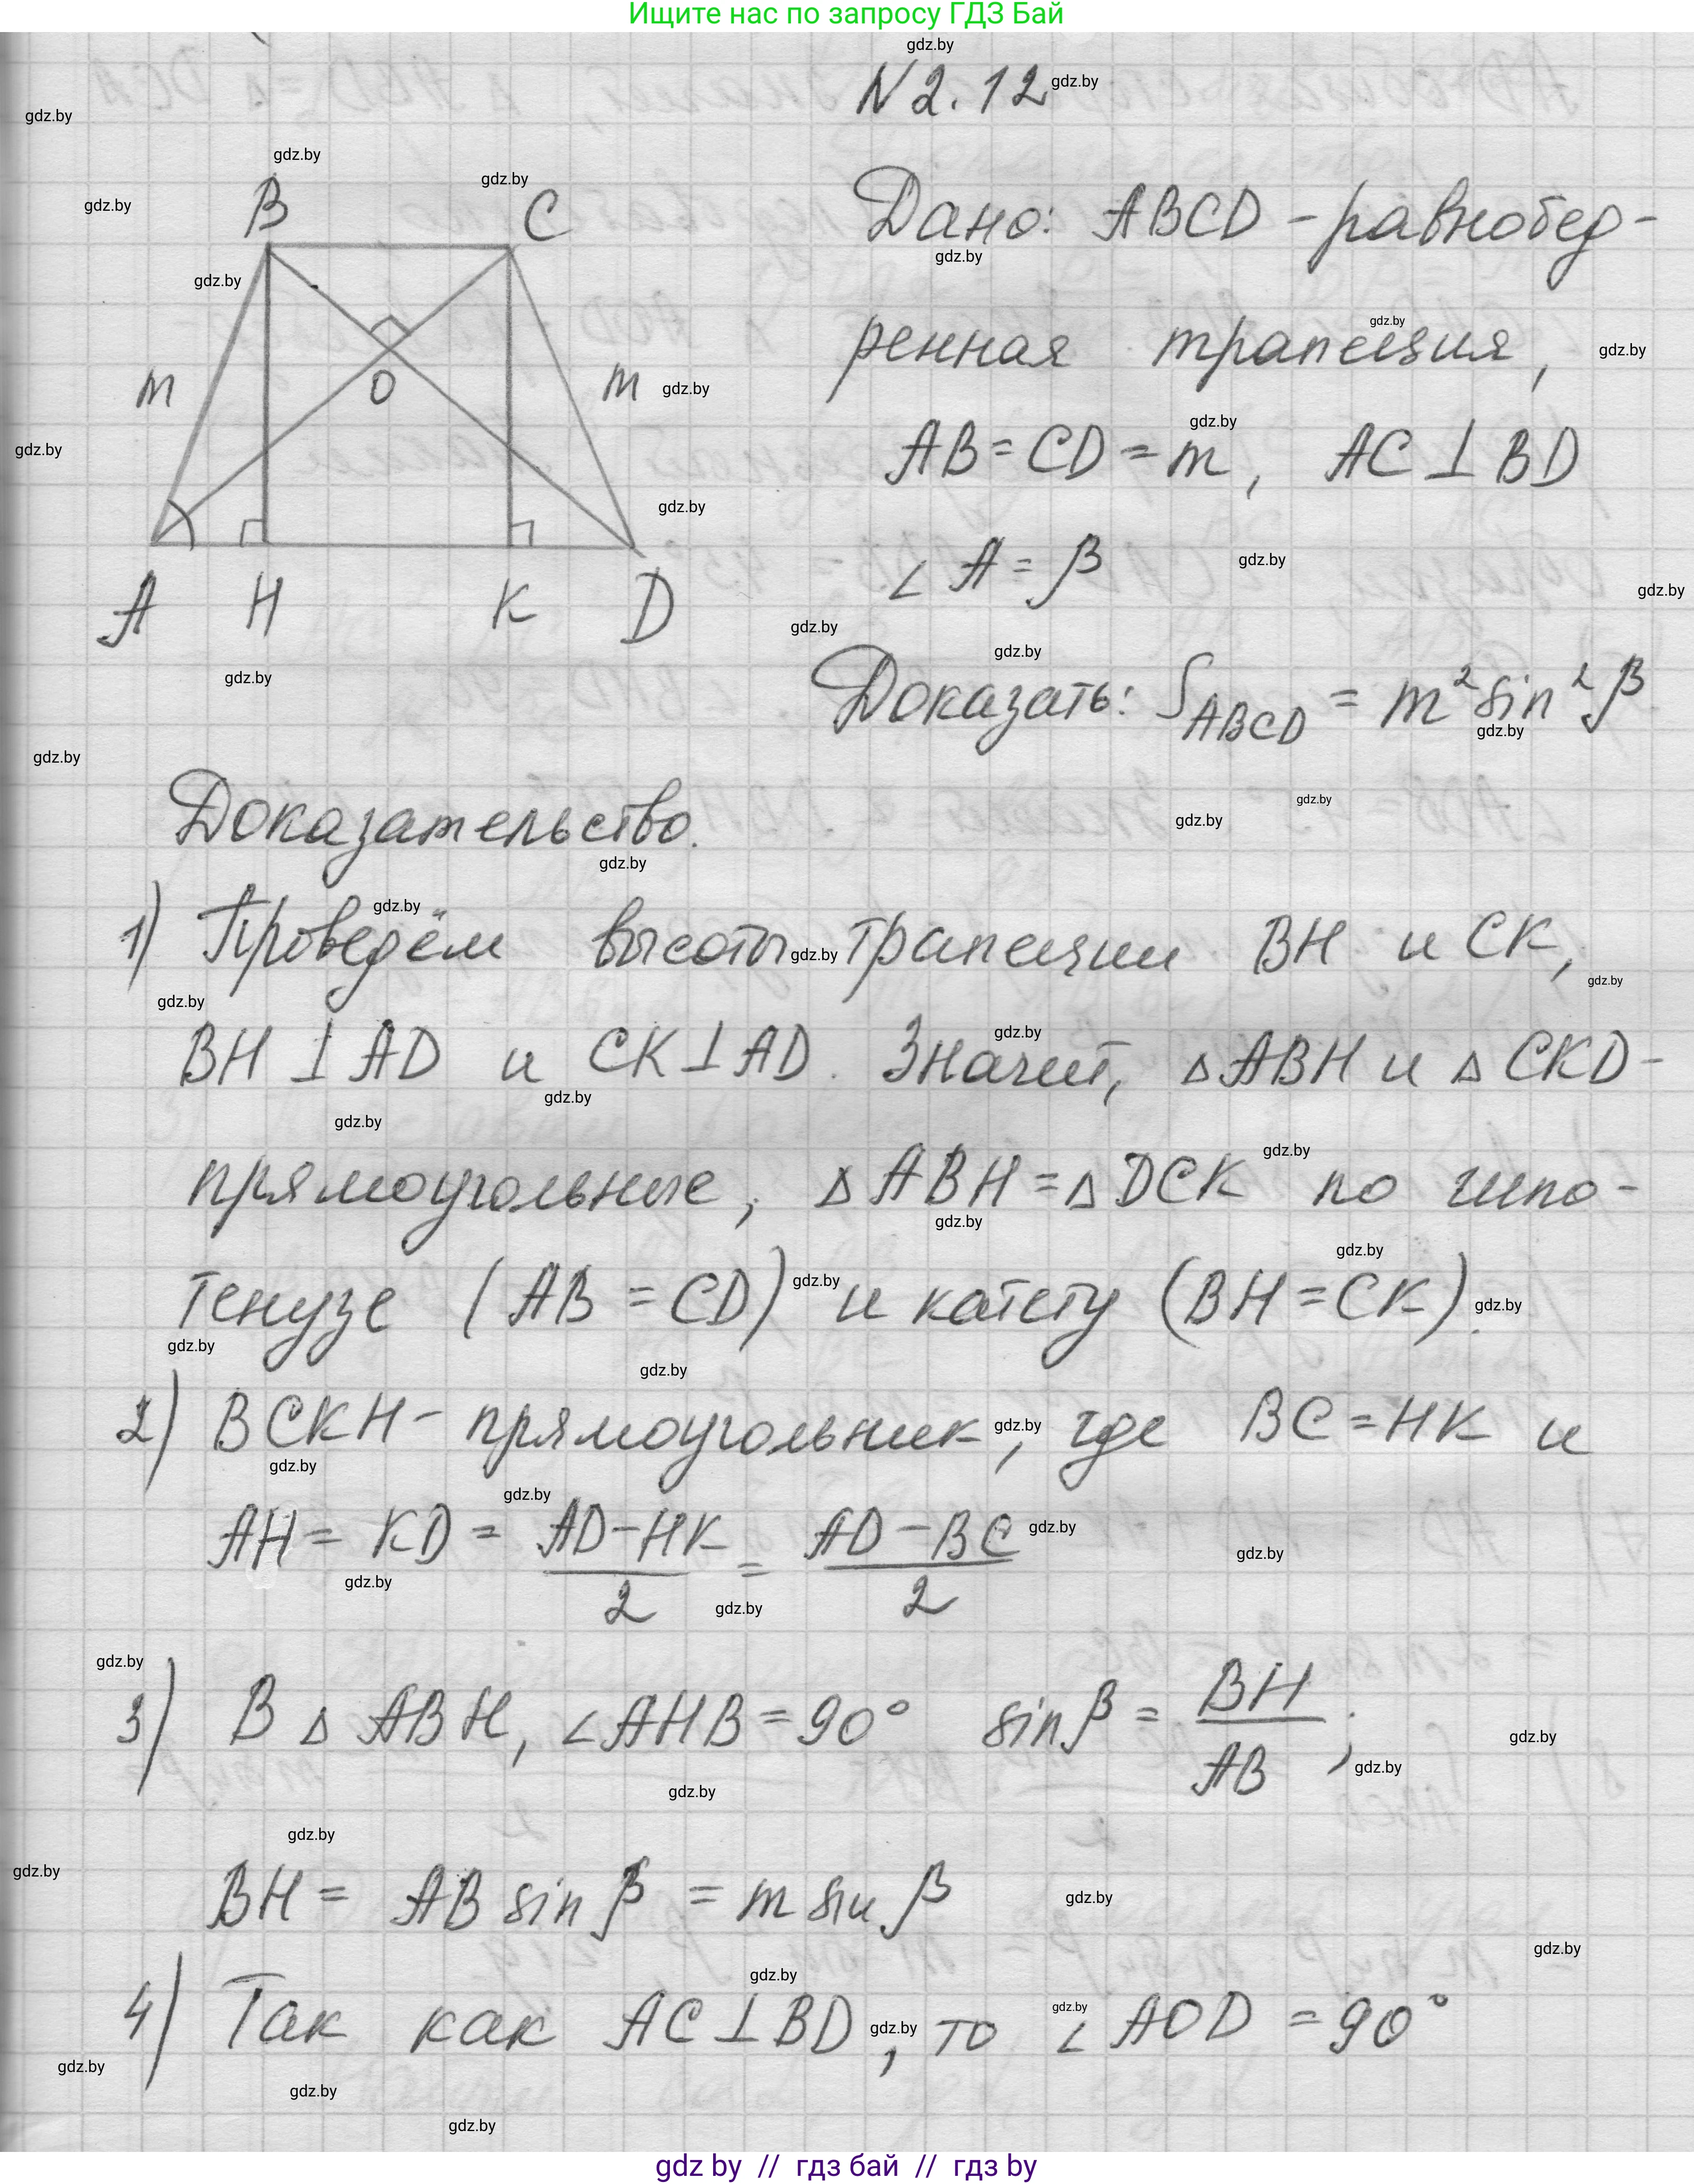 Ищите нас по запросу ГДЗ Бай
N 2.12
B C
m O m
A H K D
Дано: ABCD - равнобед-
ренная трапеция,
AB = CD = m, AC ⊥ BD
∠ A = β
Доказать: S_ABCD = m² sin² β
Доказательство.
1) Проведём высоты трапеции BH и CK,
BH ⊥ AD и CK ⊥ AD. Значит, △ ABH и △ CKD -
прямоугольные, △ ABH = △ DCK по гипо-
тенузе (AB = CD) и катету (BH = CK).
2) BCKH - прямоугольник, где BC = HK и
AH = KD = (AD - HK)/2 = (AD - BC)/2
3) В △ ABH, ∠AHB = 90° sin β = BH/AB;
BH = AB sin β = m sin β
4) Так как AC ⊥ BD, то ∠ AOD = 90°
gdz by // гдз бай // гдз by